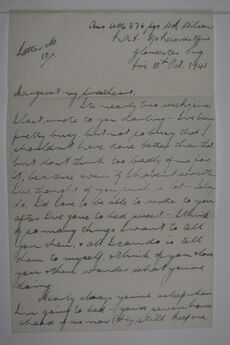 Letter No
10/.
Aus 406376 Sgt A.R. Wilson
R.A.F. c/o Records Office
Gloucester Eng
Fri 10th Oct. 1941
Margaret my sweetheart,
Its nearly two weeks since
I last wrote to you darling - I've been
pretty busy, but not so busy that I
shouldn't have done better than that,
but don't think too badly of me for
it, because even if I haven't written
I've thought of you such a lot -
do. I'd love to be able to write to you
after I've gone to bed sweet - I think
of so many things I want to tell
you then, & all I can do is tell
them to myself, & think of you & love
you & then wonder what you're
doing.
Nearly always you're asleep when
I'm going to bed - you're seven hours
ahead of us now (they still keep one